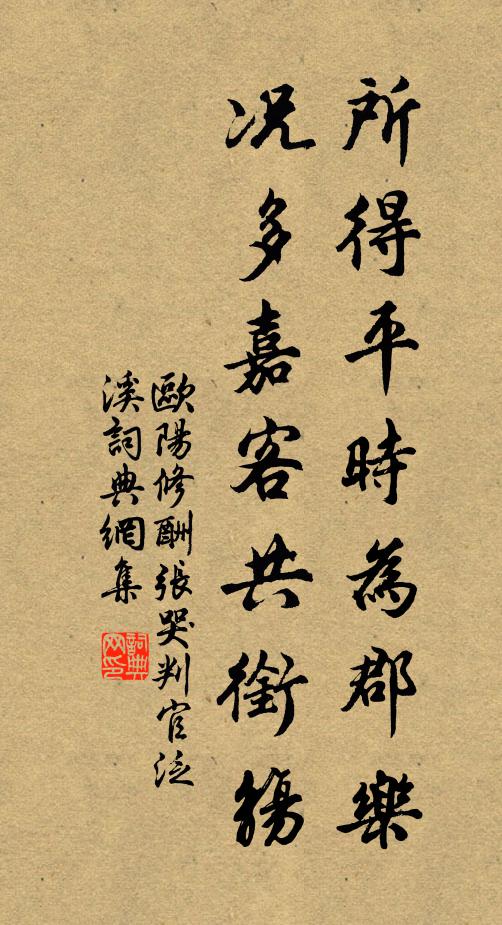 所得平時為郡樂
况多嘉客共銜觴
歐陽修酬張器判官泛
溪詞典網集
詞典
网印